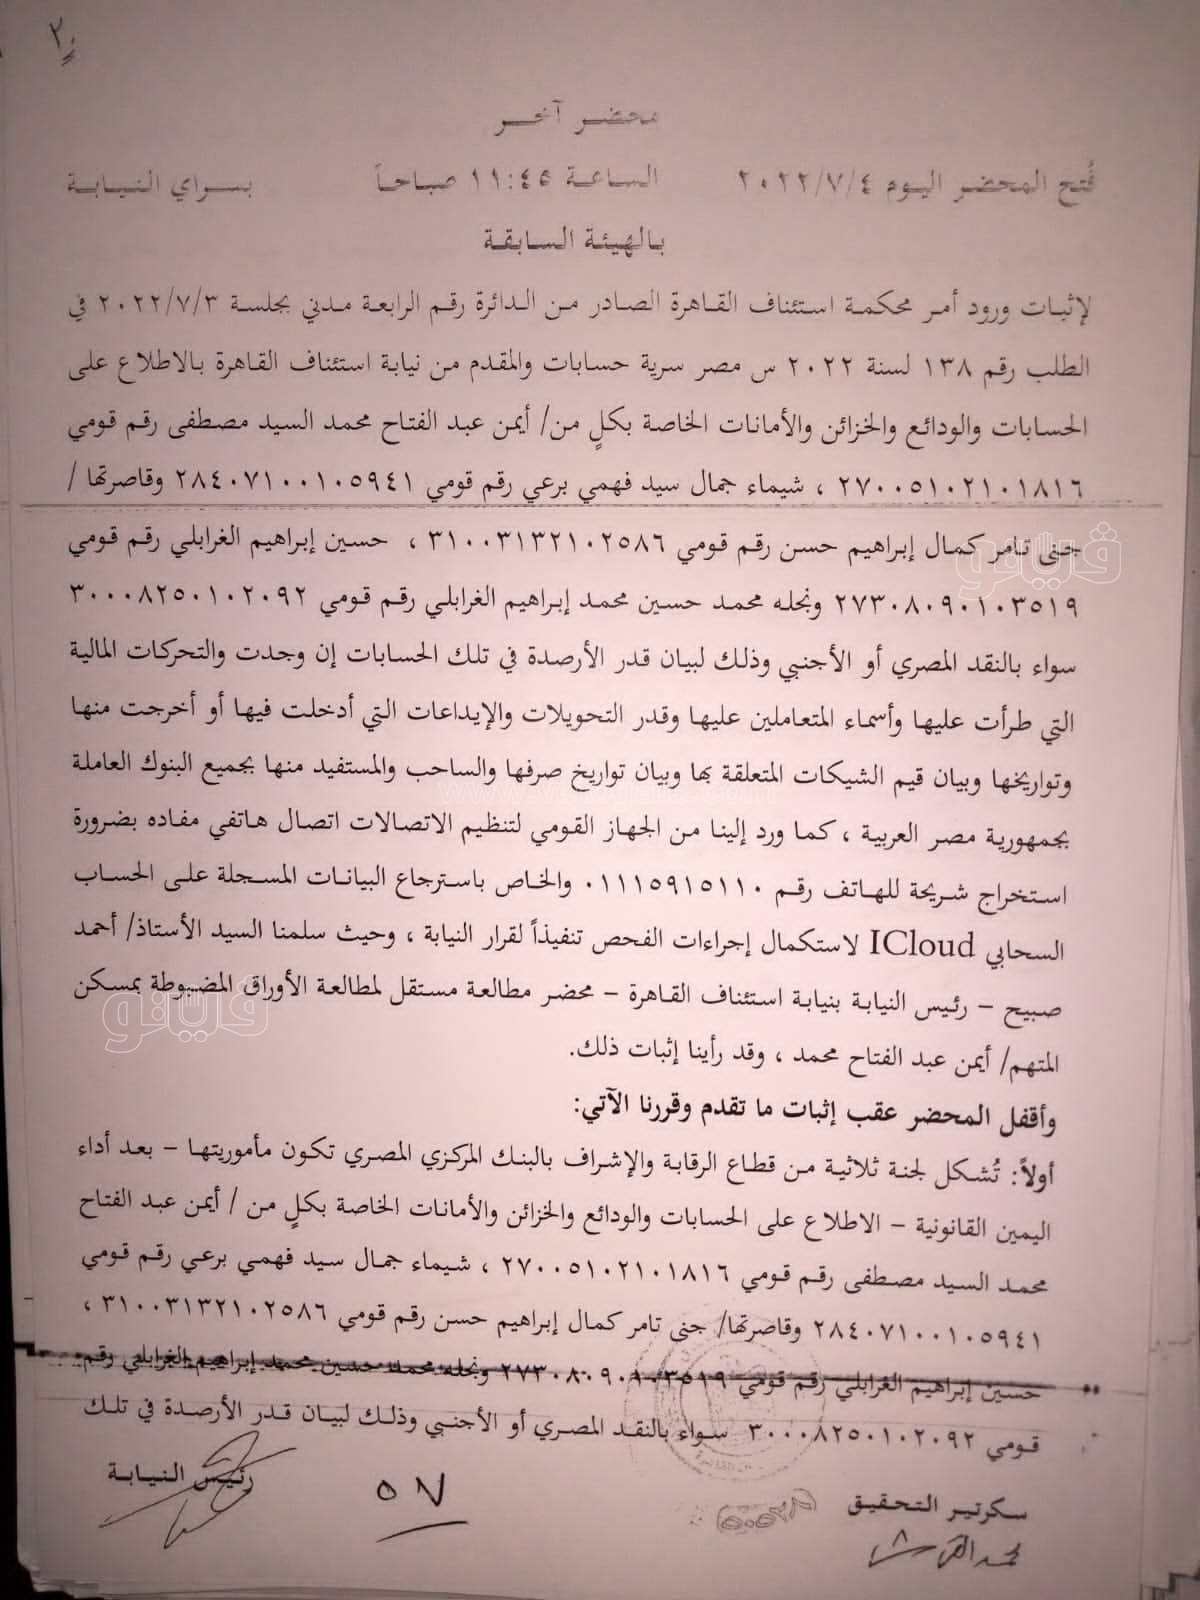 محضر آخر
فُتح المحضر اليوم ٢٠٢٢/٧/٤ الساعة ١١:٤٥ صباحاً بسراي النيابة
بالهيئة السابقة
لإثبات ورود أمر محكمة استئناف القاهرة الصادر من الدائرة رقم الرابعة مدني بجلسة ٢٠٢٢/٧/٣ في
الطلب رقم ١٣٨ لسنة ٢٠٢٢ س مصر سرية حسابات والمقدم من نيابة استئناف القاهرة بالاطلاع على
الحسابات والودائع والخزائن والأمانات الخاصة بكلٍ من/ أيمن عبد الفتاح محمد السيد مصطفى رقم قومي
٢٧٠٠٥١٠٢١٠١٨١٦ ، شيماء جمال سيد فهمي برعي رقم قومي ٢٨٤٠٧١٠٠١٠٥٩٤١ وقاصرتها /
جنى تامر كمال إبراهيم حسن رقم قومي ٣١٠٠٣١٣٢١٠٢٥٨٦ ، حسين إبراهيم الغرابلي رقم قومي
٢٧٣٠٨٠٩٠١٠٣٥١٩ ونجله محمد حسين محمد إبراهيم الغرابلي رقم قومي ٣٠٠٠٨٢٥٠١٠٢٠٩٢
سواء بالنقد المصري أو الأجنبي وذلك لبيان قدر الأرصدة في تلك الحسابات إن وجدت والتحركات المالية
التي طرأت عليها وأسماء المتعاملين عليها وقدر التحويلات والإيداعات التي أدخلت فيها أو أخرجت منها
وتواريخها وبيان قيم الشيكات المتعلقة بها وبيان تواريخ صرفها والساحب والمستفيد منها بجميع البنوك العاملة
بجمهورية مصر العربية ، كما ورد إلينا من الجهاز القومي لتنظيم الاتصالات اتصال هاتفي مفاده بضرورة
استخراج شريحة للهاتف رقم ٠١١١٥٩١٥١١٠ والخاص باسترجاع البيانات المسجلة على الحساب
السحابي ICloud لاستكمال إجراءات الفحص تنفيذاً لقرار النيابة ، وحيث سلمنا السيد الأستاذ/ أحمد
صبيح – رئيس النيابة بنيابة استئناف القاهرة – محضر مطالعة مستقل لمطالعة الأوراق المضبوطة بمسكن
المتهم/ أيمن عبد الفتاح محمد ، وقد رأينا إثبات ذلك.
وأقفل المحضر عقب إثبات ما تقدم وقررنا الآتي:
أولاً: تُشكل لجنة ثلاثية من قطاع الرقابة والإشراف بالبنك المركزي المصري تكون مأموريتها – بعد أداء
اليمين القانونية – الاطلاع على الحسابات والودائع والخزائن والأمانات الخاصة بكلٍ من / أيمن عبد الفتاح
محمد السيد مصطفى رقم قومي ٢٧٠٠٥١٠٢١٠١٨١٦ ، شيماء جمال سيد فهمي برعي رقم قومي
٢٨٤٠٧١٠٠١٠٥٩٤١ وقاصرتها/ جنى تامر كمال إبراهيم حسن رقم قومي ٣١٠٠٣١٣٢١٠٢٥٨٦ ،
حسين إبراهيم الغرابلي رقم قومي ٢٧٣٠٨٠٩٠١٠٣٥١٩ ونجله محمد حسين محمد إبراهيم الغرابلي رقم
قومي ٣٠٠٠٨٢٥٠١٠٢٠٩٢ سواء بالنقد المصري أو الأجنبي وذلك لبيان قدر الأرصدة في تلك
سكرتير التحقيق ٥٧ رئيس النيابة
ڤيتو
ڤيتو